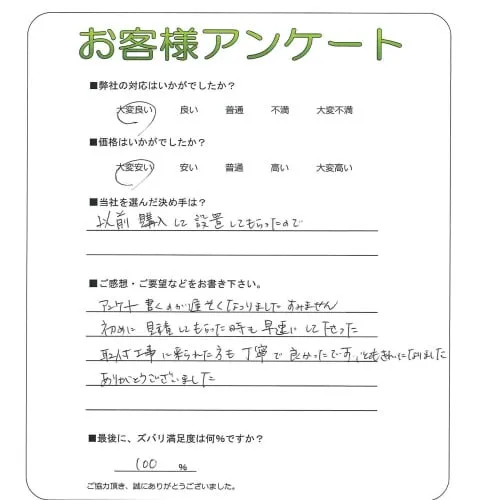 お客様アンケート
■弊社の対応はいかがでしたか?
大変良い 良い 普通 不満 大変不満
■価格はいかがでしたか?
大変安い 安い 普通 高い 大変高い
■当社を選んだ決め手は?
以前購入して設置してもらったので
■ご感想・ご要望などをお書き下さい。
アンケート書くのが遅せくなりました すみません
初めに見積してもらった時も早速にして下さった
取付工事に来られた方も丁寧で良かったです。になりました
ありがとうございました
■最後に、ズバリ満足度は何%ですか?
100 %
ご協力頂き、誠にありがとうございました。